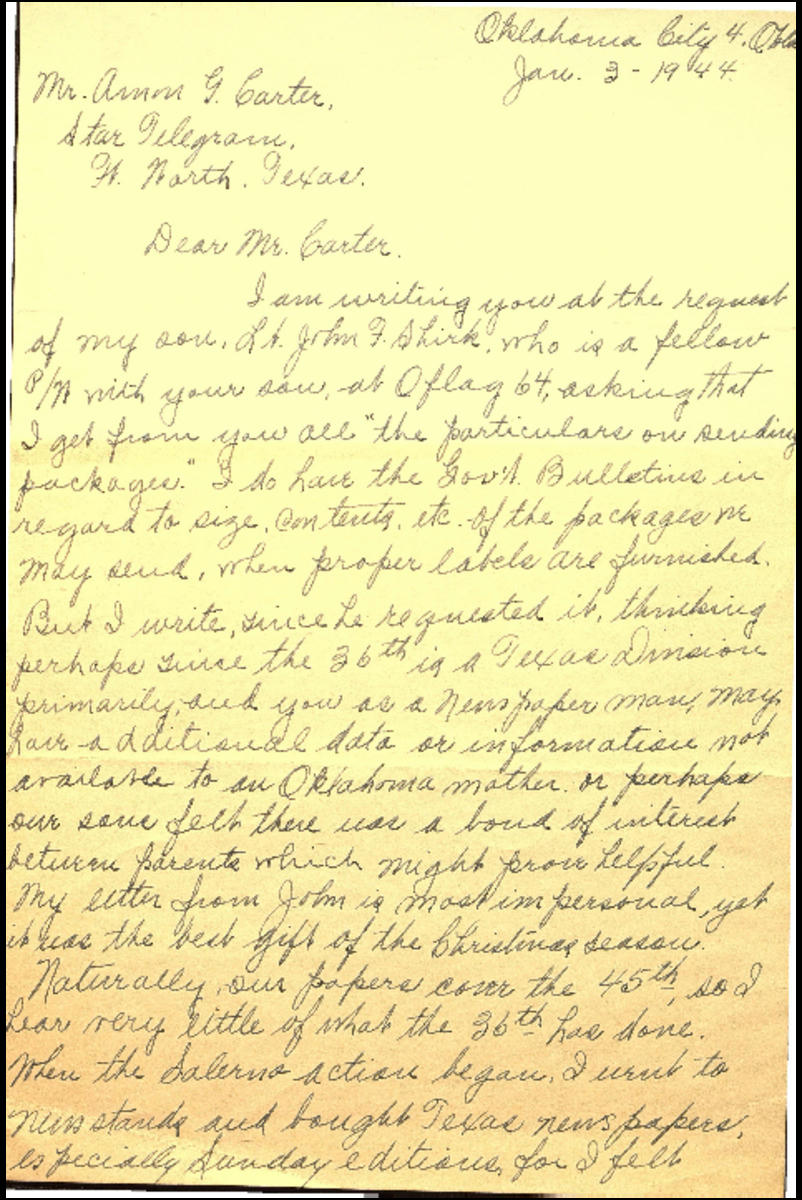 Oklahoma City 4. Okla
Jan. 3 - 1944.
Mr. Amon G. Carter,
Star Telegram,
Ft. Worth. Texas.
Dear Mr. Carter.
I am writing you at the request
of my son, Lt. John F. Shirk, who is a fellow
P/W with your son, at Oflag 64, asking that
I get from you all "the particulars on sending
packages." I do have the Gov't. Bulletins in
regard to size, contents, etc. of the packages we
may send, when proper labels are furnished.
But I write, since he requested it, thinking
perhaps since the 36th is a Texas Division
primarily, and you as a Newspaper man, may
have additional data or information not
available to an Oklahoma mother. or perhaps
our sons felt there was a bond of interest
between parents which might prove helpful.
My letter from John is most impersonal, yet
it was the best gift of the Christmas season.
Naturally, our papers cover the 45th, so I
hear very little of what the 36th has done.
When the Salerno action began, I went to
news stands and bought Texas news papers,
especially Sunday editions, for I felt